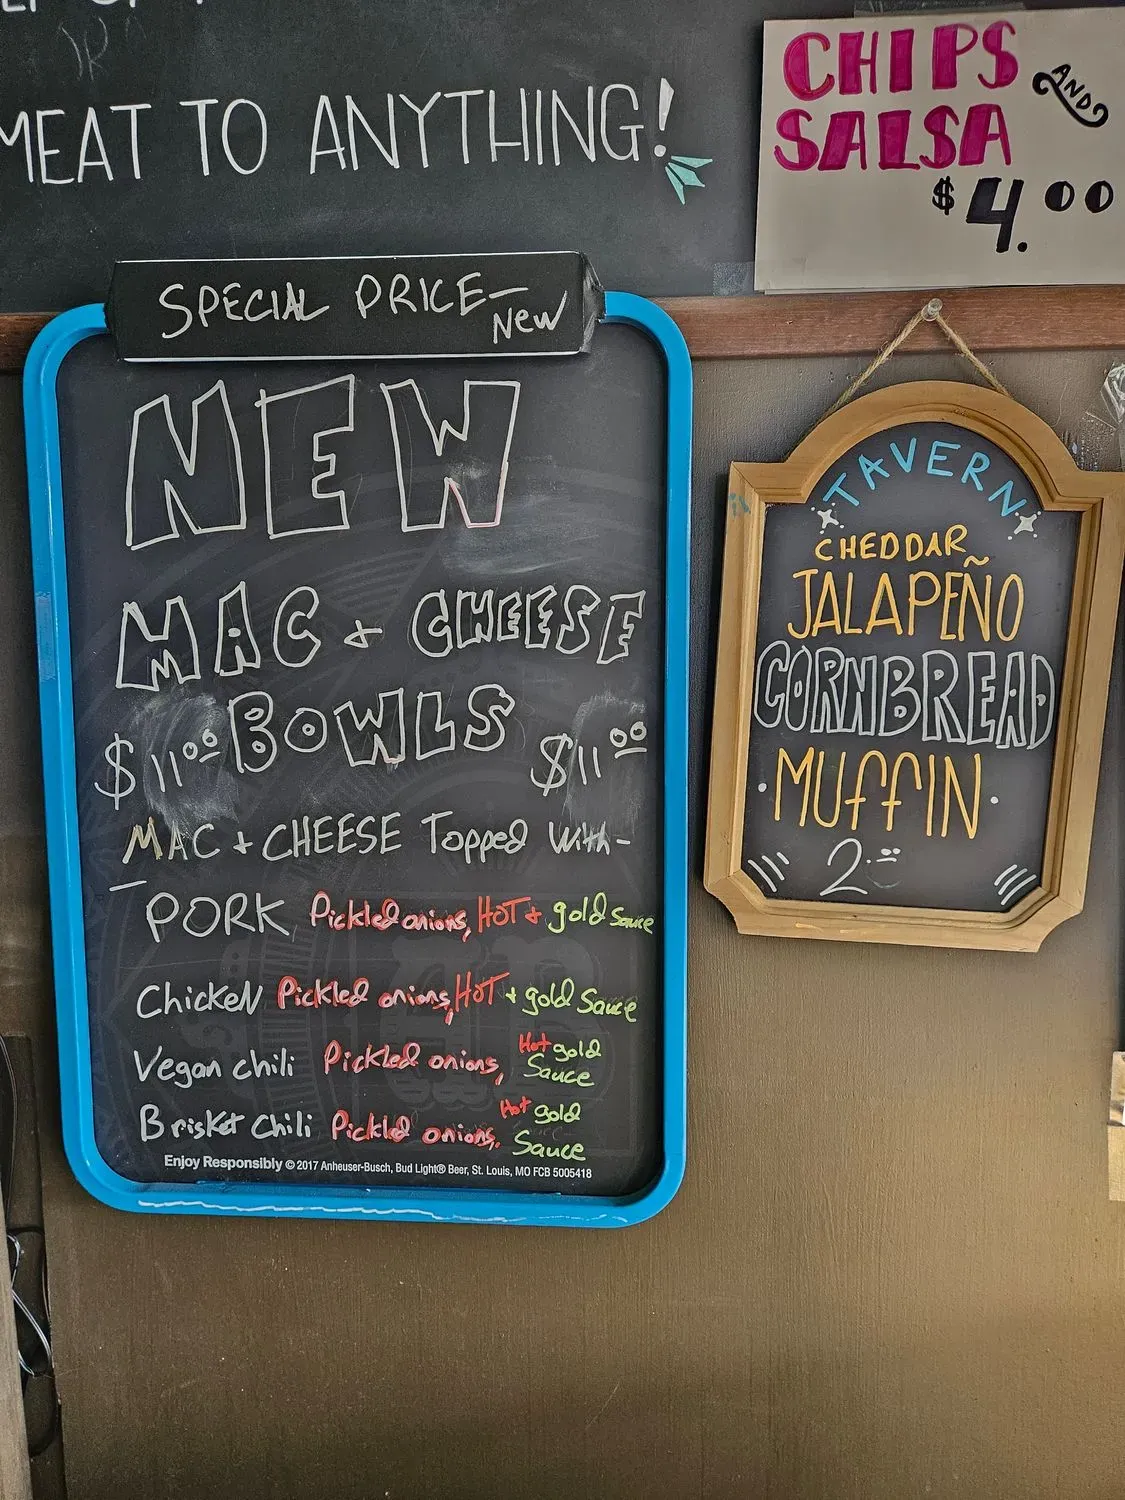 MEAT TO ANYTHING!
CHIPS AND
SALSA
$4.00
SPECIAL PRICE—
New
NEW
MAC + CHEESE
$11.00 BOWLS $11.00
MAC + CHEESE Topped With-
PORK Pickled onions, HOT + gold Sauce
Chicken Pickled onions, HOT + gold Sauce
Vegan chili Pickled onions, Hot gold
Sauce
Brisket Chili Pickled onions, Hot gold
Sauce
Enjoy Responsibly © 2017 Anheuser-Busch, Bud Light® Beer, St. Louis, MO FCB 5005418
TAVERN
CHEDDAR
JALAPEÑO
CORNBREAD
MUFFIN
2.00